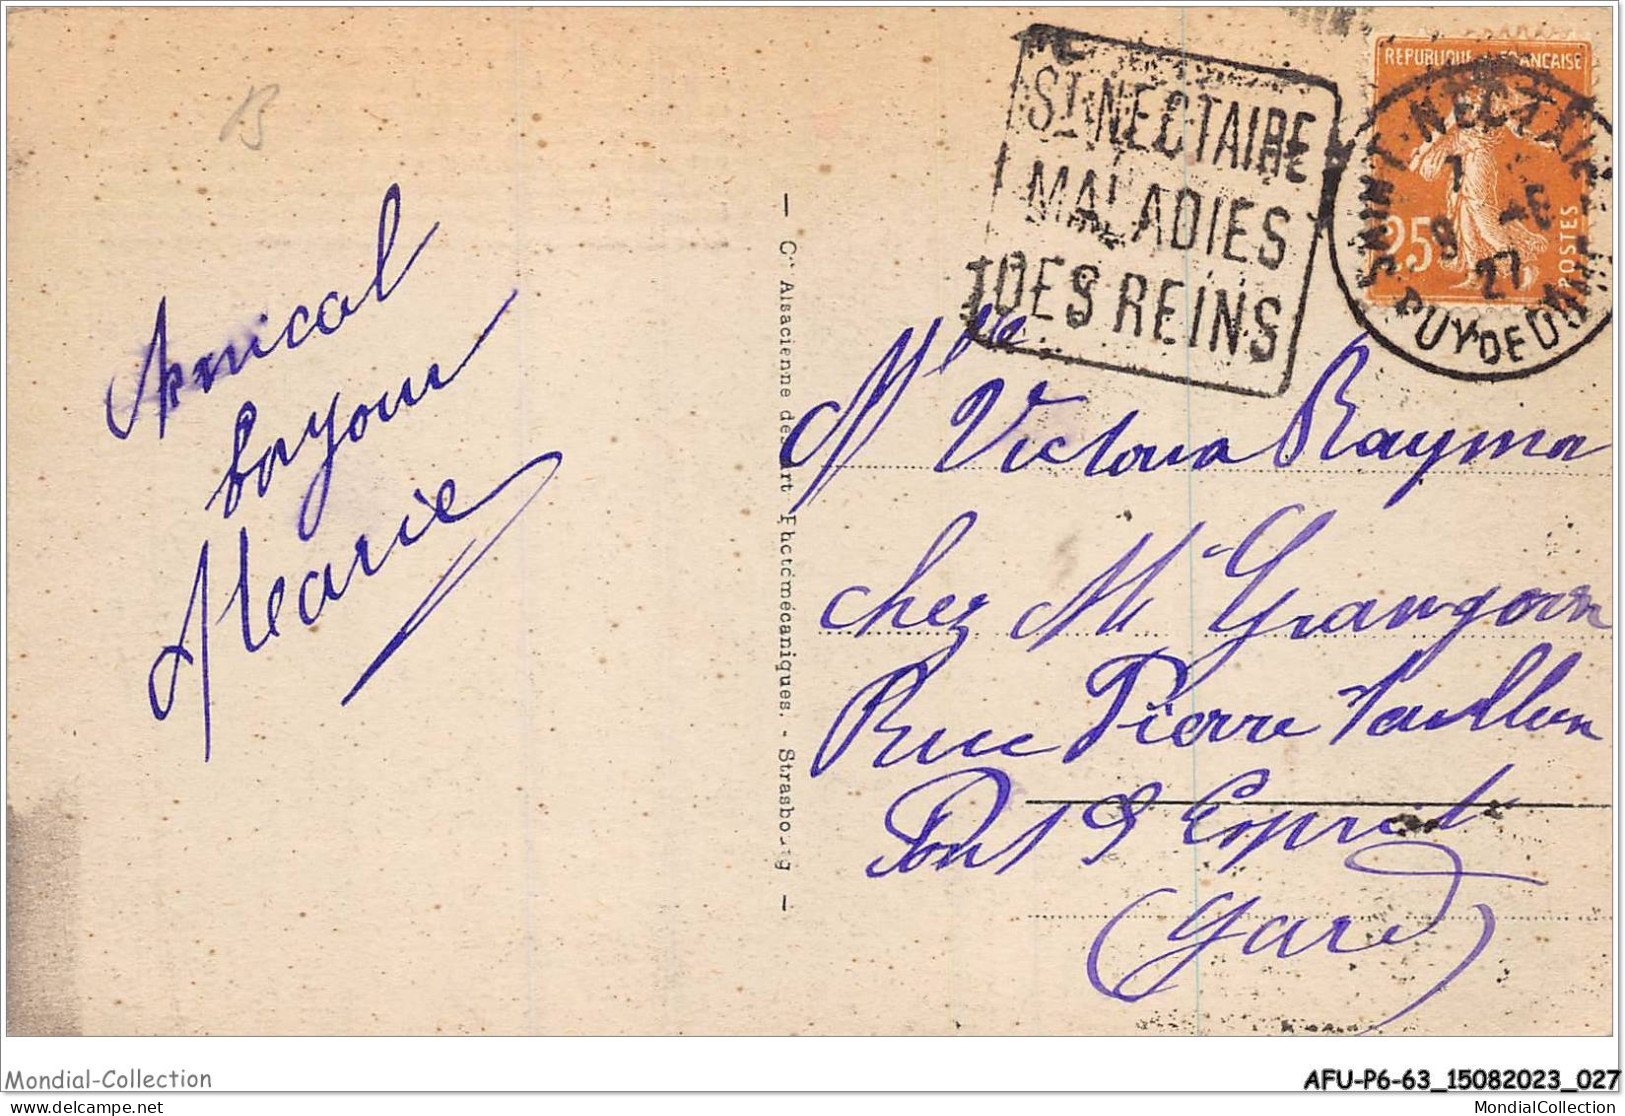 B
Amical
bonjour
Marie
ST NECTAIRE
MALADIES
DES REINS
REPUBLIQUE FRANCAISE
25
POSTES
SAINT-NECTAIRE
9 -6
27
PUY DE DOME
Cie Alsacienne des Art Photomécaniques. - Strasbourg
Mlle Victoria Raymon
chez M Grangeon
Rue Pierre
Pont St Esprit
(Gard)
Mondial-Collection
AFU-P6-63_15082023_027
delcampe.net
MondialCollection